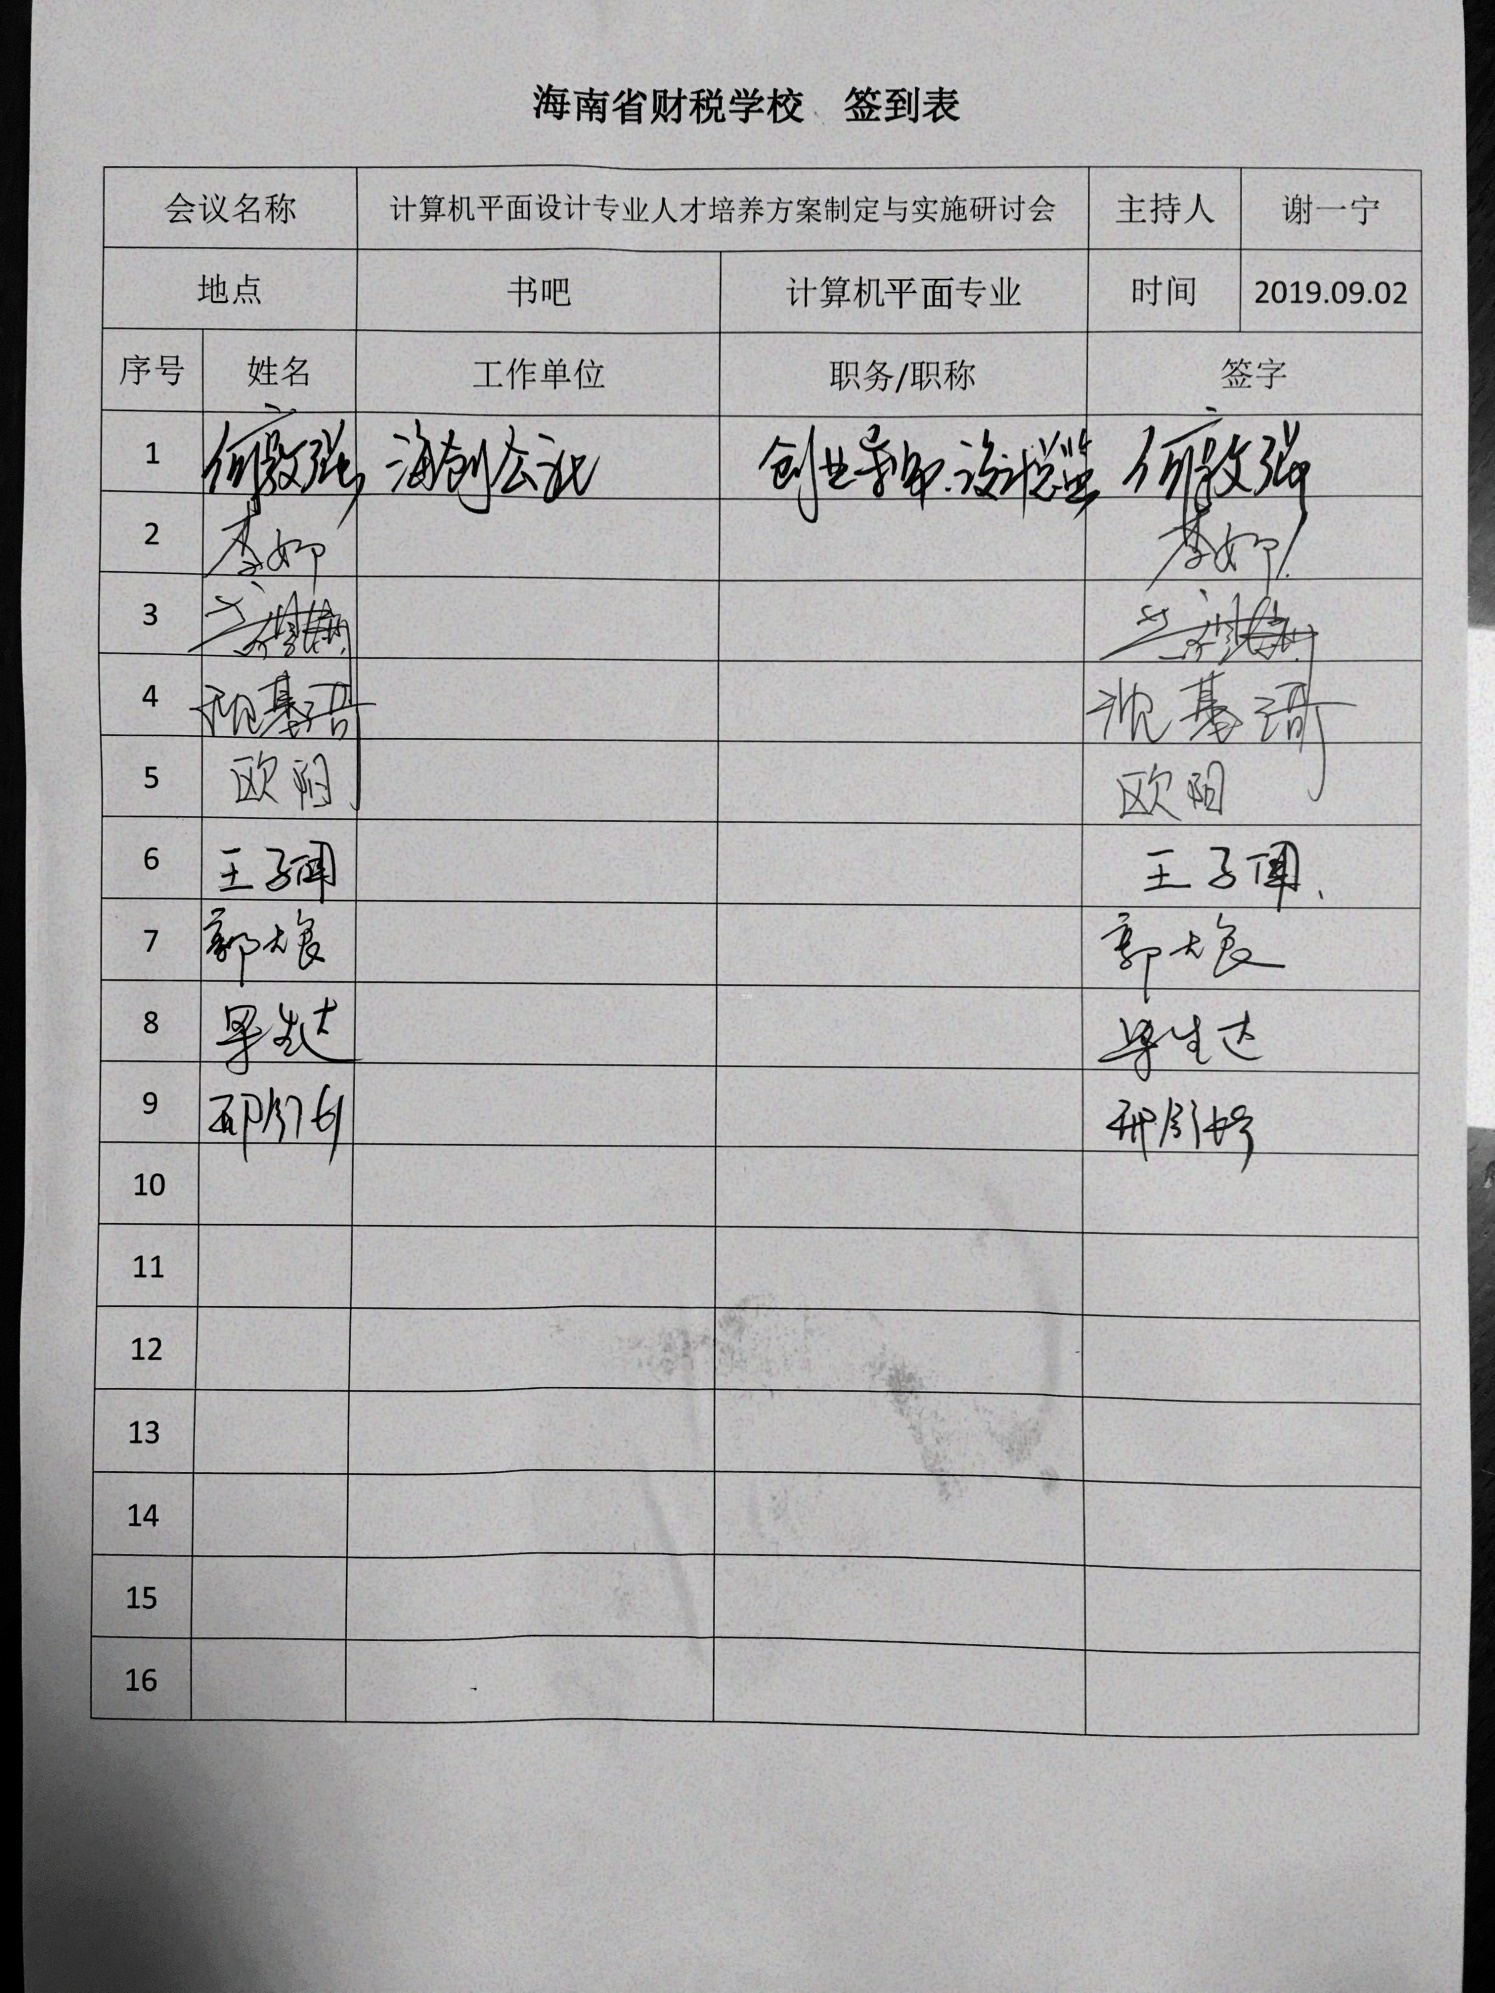 海南省财税学校 签到表
会议名称 计算机平面设计专业人才培养方案制定与实施研讨会 主持人 谢一宁
地点 书吧 计算机平面专业 时间 2019.09.02
序号 姓名 工作单位 职务/职称 签字
1 海创公社 创业导师.设计总监
2
3
4 沈基琦 沈基琦
5 欧阳 欧阳
6 王子
7 郭大良 郭大良
8 生达 生达
9 邢
10
11
12
13
14
15
16